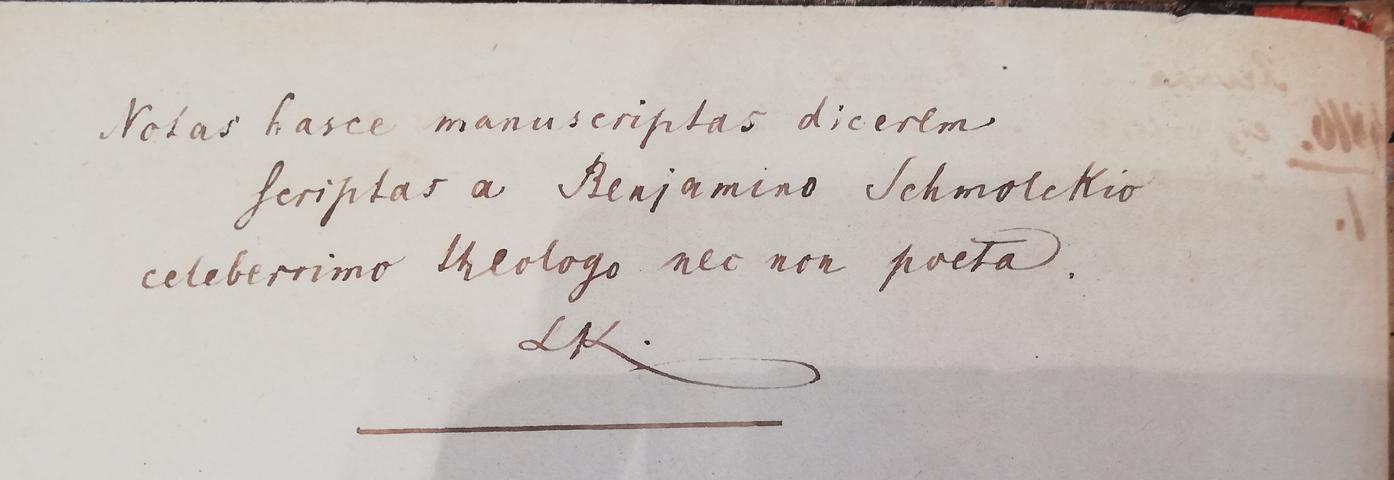 Notas hasce manuscriptas dicerem
scriptas a Benjamino Schmolckio
celeberrimo theologo nec non poeta.
LK.